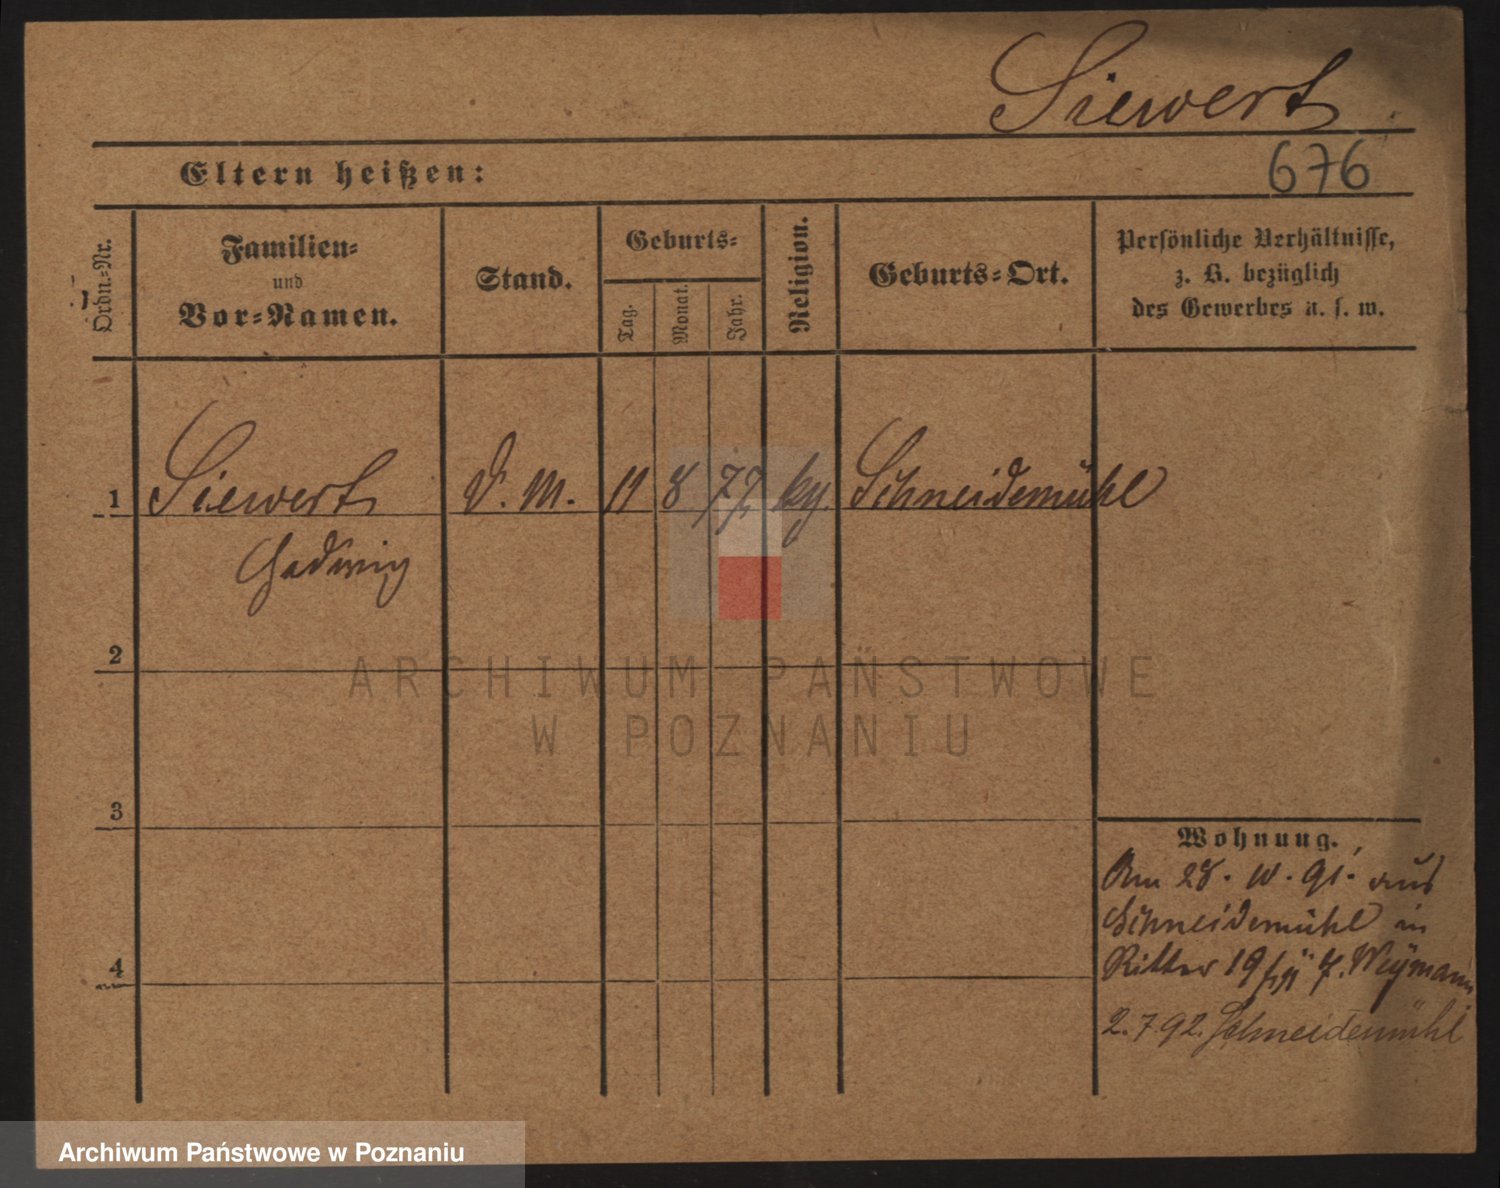 Siewert
Eltern heißen:
676
Ordn.-Nr.
Familien-
und
Vor-Namen.
Stand.
Geburts-
Tag.
Monat.
Jahr.
Religion.
Geburts-Ort.
Persönliche Verhältnisse,
z. B. bezüglich
des Gewerbes u. s. w.
1
Siewert
D. M.
11
8
77
Schneidemühl
Hedwig
2
3
4
Wohnung.
Am 28. 10. 91. aus
Schneidemühl in
Ritter 19 Weymann
2.7.92. Schneidemühl
ARCHIWUM PAŃSTWOWE
W POZNANIU
Archiwum Państwowe w Poznaniu